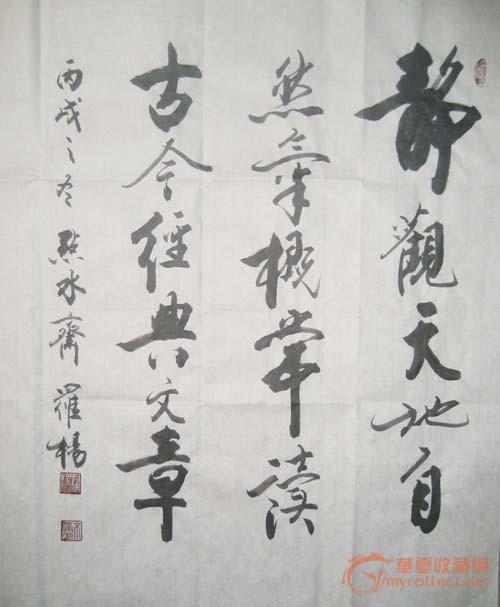 靜觀天地自
然氣概常讀
古今經典文章
丙戌之冬 點水齋 羅楊
華夏收藏網
mycollect.net